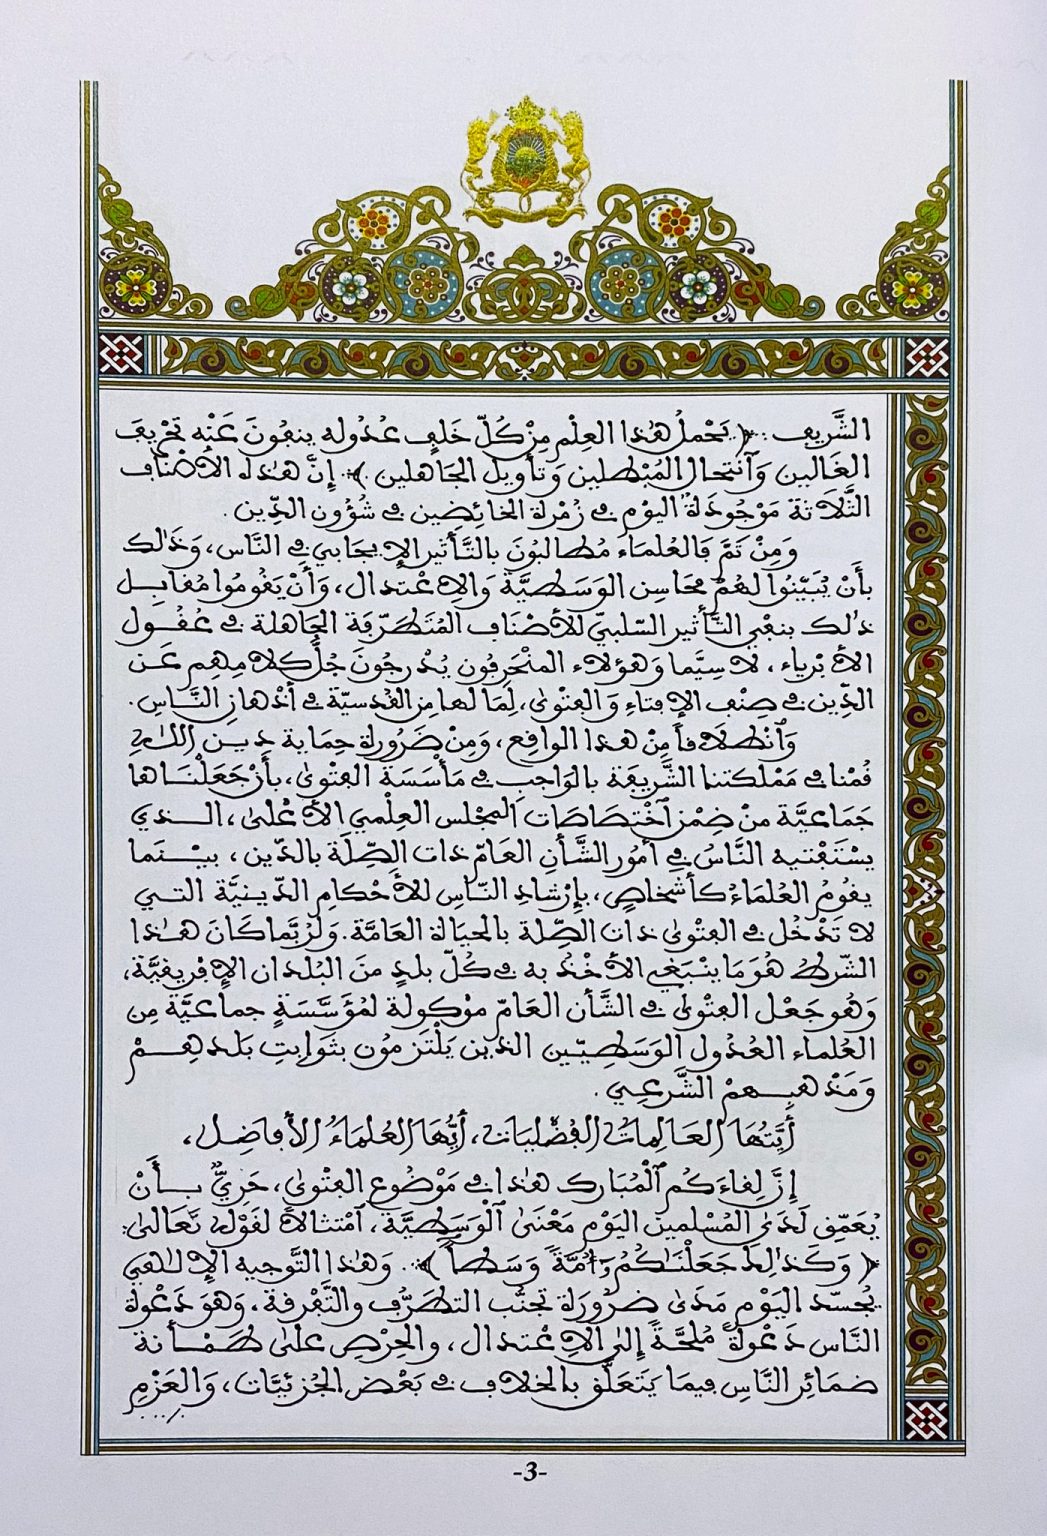 الشَّرِيف: ﴿يَحْمِلُ هَٰذا العِلْم مِنْ كُلّ خَلَفٍ عُدُوله ينفُونَ عَنْه تَحْريفَ
الغَالين وَٱنتحال المُبْطلين وَتأويل الجَاهلين﴾. إنَّ هَٰذه الأصْنَاف
الثَّلَاثة مَوْجُودَةٌ اليَوْم في زُمْرة الخائضِين في شُؤُون الدِّين.
وَمِنْ ثمَّ فَالعُلماء مُطالبُونَ بالتَّأثير الإيجَابي في النَّاس، وَذَٰلك
بأَنْ يُبَيّنُوا لهُمْ محَاسن الوَسَطيَّة وَالاعْتدال، وَأَنْ يَقُومُوا مُقابل
ذٰلك بنفْي التَّأثير السّلبيّ للأصْنَاف المُتَطَرّفة الجَاهلة في عُقُول
الأبْرياء، لا سيَّما وَهؤُلاء المنْحَرفُون يُدْرجُونَ جُلَّ كلامهِم عَن
الدِّين في صِنْف الإفتاءِ وَالفتْوىٰ، لِمَا لهَا مِنَ القُدسيّة في أذْهانِ النَّاسِ.
وَٱنْطلاقاً مِنْ هٰذا الواقِع، وَمِنْ ضَرُورة حِمَاية دِين اللَّهِ
قُمْنا في مَمْلكتنا الشَّريفَة بالوَاجبِ في مَأْسَسَة الفتْوىٰ، بأَنْ جَعَلْنَاها
جَمَاعيَّة منْ ضِمْنِ ٱخْتصَاصَات المجْلس العِلْمي الأعْلىٰ، الذي
يسْتَفْتيه النَّاسُ في أمُور الشَّأنِ العَامّ ذات الصِّلَة بالدّين، بيْنمَا
يقُومُ العُلمَاءُ كأشْخاصٍ، بإرْشادِ النَّاسِ للأحْكامِ الدّينيَّة التي
لا تَدْخُل في الفتْوىٰ ذات الصِّلة بالحيَاة العَامَّة. وَلرُبَّما كَانَ هٰذا
الشّرطُ هُوَ مَا ينْبَغي الأخْذُ به في كُلّ بلدٍ منَ البُلدان الإفْريقيَّة،
وَهُو جَعْل الفتْوىٰ في الشَّأن العَامّ موْكولة لمُؤَسَّسَةٍ جماعيَّة مِن
العُلماء العُدُول الوَسَطيّين الذين يَلْتزمُون بثوَابتِ بَلدهِمْ
وَمَذْهبِهمْ الشَّرعي.
أيَّتُهَا العَالِمَاتُ الفُضْليَات، أيُّهَا العُلمَاءُ الأفَاضِل،
إنَّ لِقاءَكُم ٱلْمُبَارك هَٰذا في مَوْضُوع الفتْوىٰ، حَريٌّ بأنْ
يُعَمِّق لَدَى المُسْلمين اليَوْم مَعْنَىٰ ٱلْوَسَطيَّة، ٱمْتثالاً لقَوْله تَعَالىٰ:
﴿وَكَذَٰلِكَ جَعَلْنَٰكُمُۥٓ أُمَّةً وَسَطاً﴾. وَهَٰذا التَّوجيه الإلٰهي
يُجسّد اليَوْم مَدَىٰ ضَرُورَة تجنُّب التطَرُّف والتَّفْرقة، وَهوَ دَعْوة
النَّاس دَعْوةً مُلحَّةً إلى الاعْتدال، والحِرْصِ علىٰ طَمْأنة
ضمَائر النَّاسِ فيمَا يَتَعلَّق بالخلاف في بَعْض الجُزئيَّات، وَالعَزْمِ
-3-